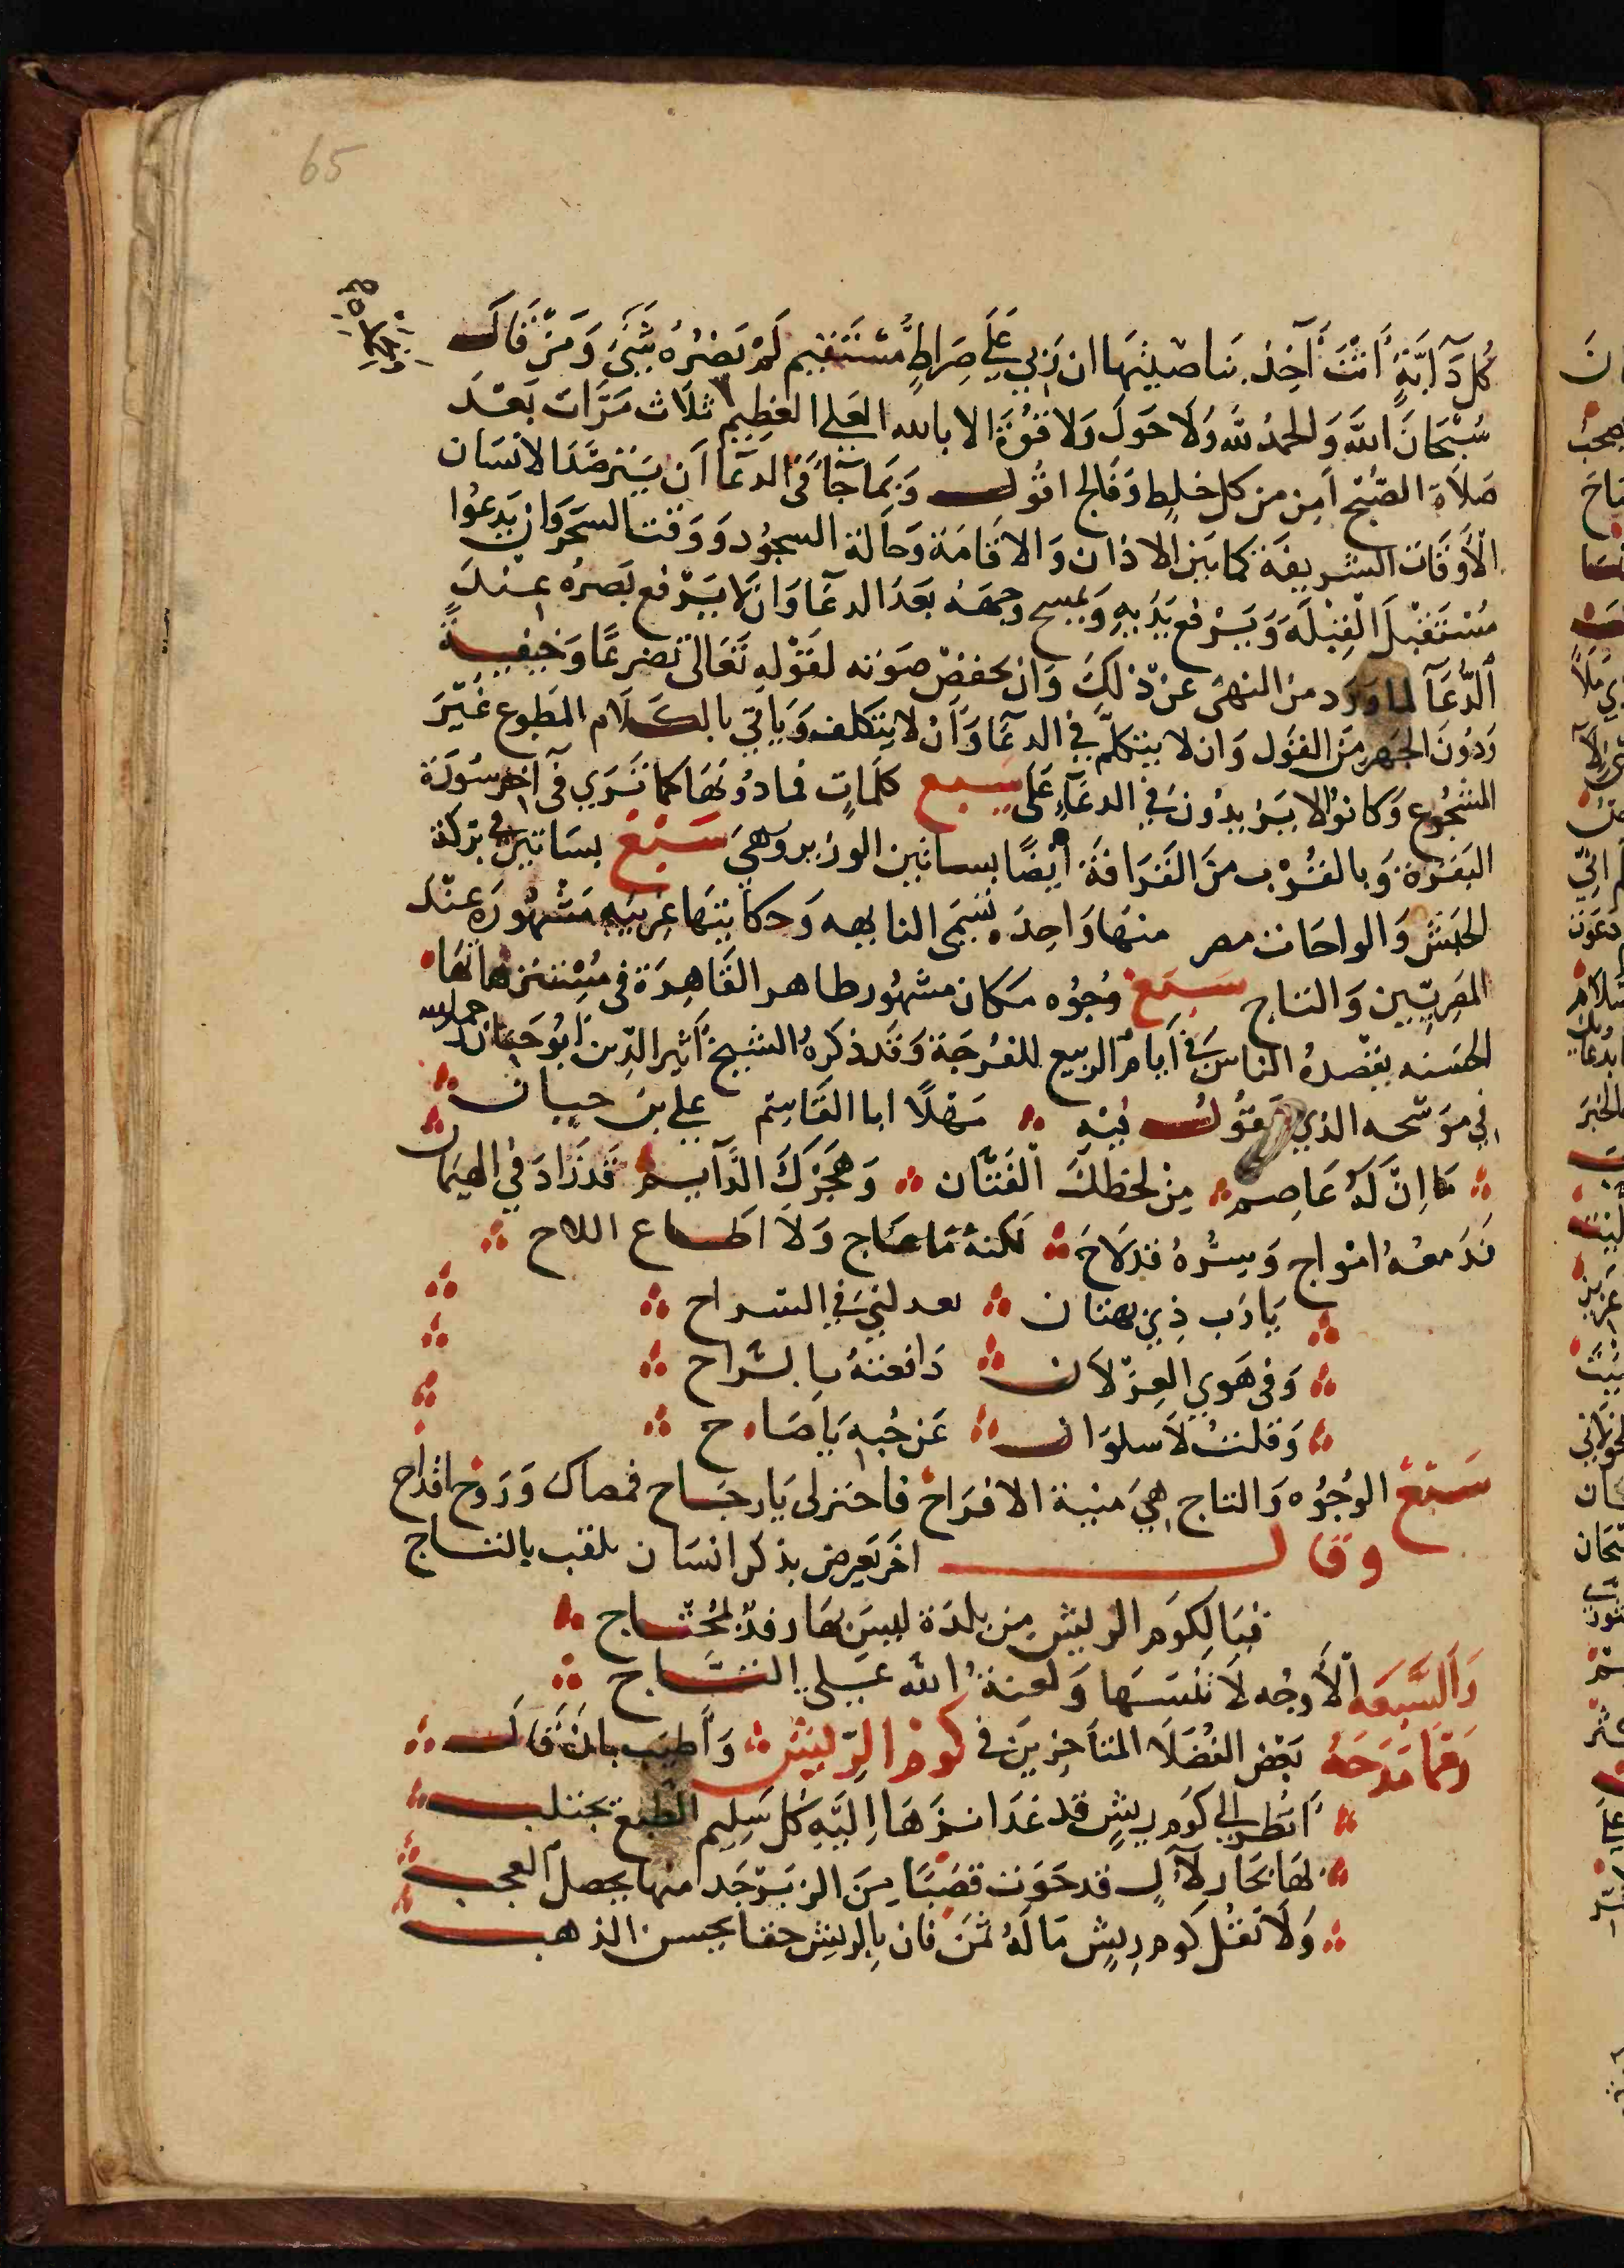 65
كُل دَآبَّةٍ أَنْتَ آخِذ بنَاصيتِهَا ان رَبي عَلَى صِرَاطٍ مُسْتَقِيم لَمْ يَضُرُه شَيئ وَمَنْ قَال
سُبْحَانَ اللَّه وَالحمدُ للَّه وَلَا حَولَ وَلا قوُةَ الا بالله العَلي العَظِيم ثلَاث مَرَّات بَعْد
صَلَاة الصُبْح اَمِن من كل خلِط وَفَالج اقوُل وَبمَا جَآ في الدعَا اَن يَترصَّدَ الانسَان
الأَوقَات الشريفَة كمَا بَين الاذان وَالاقَامَة وَحَالة السجوُد وَوَقت السَحر وَان يَدعُوا
مُسْتَقبلَ القِبْلَه وَيَرْفع يَدَيهِ وَيمسح وجهَهُ بَعَدَ الدعَا وَان لَا يَرْفع بَصرُه عِنْدَ
الدُّعَآ لما وَرَد من النهى عَنْ ذلِكَ وَان يخفضْ صَوته لقَوْلهِ تَعَالى تضرعًا وَخيفةً
وَدُونَ الجَهر مِنَ القَول وَان لا يتكلَّم في الدعَا وَاَنْ لا يتكلف وَيَاتي بالكَلَام المَطبوع غَيرَ
المسَجُوع وَكانوُا لا يَزيدُونَ في الدعَآءِ عَلَى سبع كلمَاتٍ فمادوُنهَا كما تَرَي في آخر سوُرَة
البَقرَة وَبالقُرْب منَ القَرَافة أيضًا بساتين الوزير وَهيَ سَبْعْ بسَاتين في بَركة
الحَبَش وَالواحَات مصر منهَا وَاحِدَه تسَمى النابهه وَحكايتهَا غريبَه مَشْهُورَه عنْدَ
المَصِريّين وَالتاج سَبَعْ وُجُوُه مَكان مشهُور ظاهر القَاهِرَة في مُسْتنزهاتهَا
الحَسنه يقصدُه الناس في اَيَام الربيع للفُرجَة وَقَد ذكرهُ الشيخ أثِير الدِّين ابُو حَيان رحمه الله
في موَشحه الذي يَقوُل فيْهِ مَهلًا ابا القَاسِم علي بن حيان
مَا اِنْ لَهُ عَاصِم مِن لحظكَ الفَتَّان وَهَجرَكَ الدَّآيِم قَد زَادَ في الهيمَان
فَدَمعهُ امْواج وَسِرُهُ قدلَاحَ لكنهُ مَا عَاج وَلَا اطاع اللاح
يَا رَب ذِي بهتان بعدلني في الراح
وَفي هَوي الغِزْلَان دَافعتهُ بالراح
وَقلت لَا سلوَان عَن حُبه يَا صَاح
سَبْعْ الوُجُوُه وَالتاج هيَ منية الافرَاح فاختر لى يَا رجاح قمصال وَزوج اقداح
وقال اخَر يَعرِض بذكر انسَان يلقب بالتاج
فيَا لِكَوم الريش من بلدَة ليسَ بهَا رفد لمُحْتاج
وَالسَّبعَه الأَوجُه لَا تنْسَهَا وَلعنة اللَّه عَلى التاج
وَممَا مَدَحَهُ بَعْض الفُضَلَا المتأخِرينَ في كوم الرِّيش وَاَطيَب بانْ قَال
اُنْظُر الي كوَم ريشٍ قد غَدَا نزهَا اِليَهِ كلَ سَلِيم الطبع يجتلب
لهَا بحَار لآل قد حَوَت قصَبًا مِنَ الزبَرْجَد منهَا يحصل العجب
وَلَا تقُل كوم رِيشٍ مَا لَهُ ثمَن فان بالريش حقا يحسن الذهب